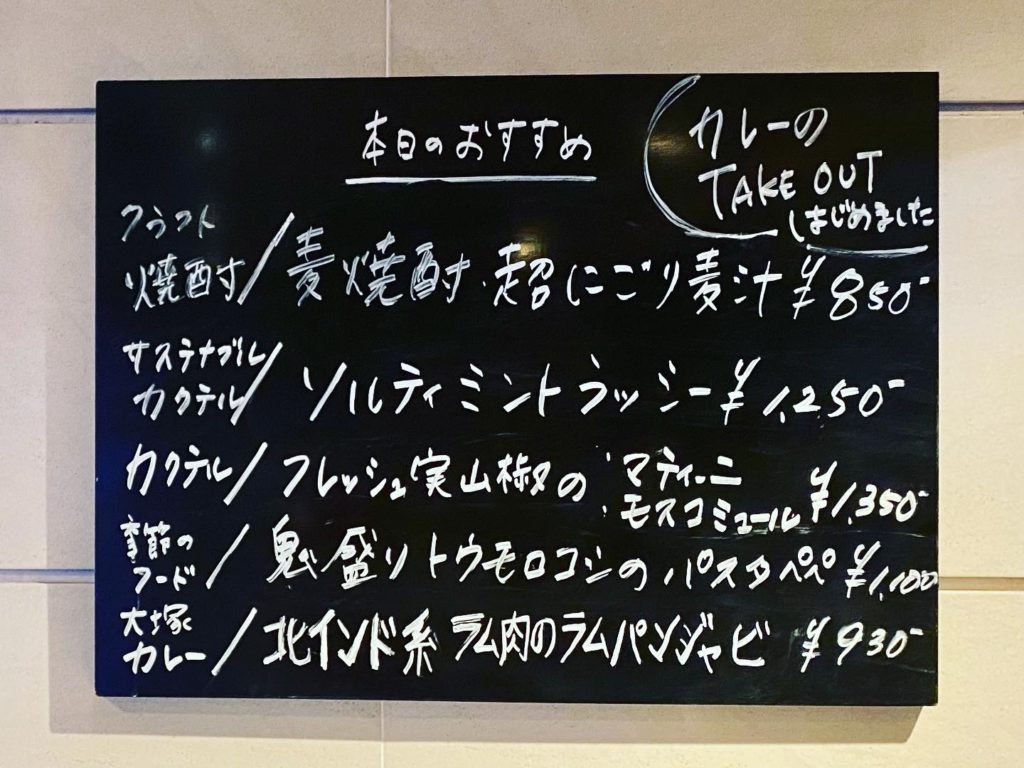 本日のおすすめ
カレーの
TAKE OUT
はじめました
クラフト
焼酎/麦焼酎・超にごり麦汁 ¥850-
サステナブル
カクテル/ソルティミントラッシー ¥1,250-
カクテル/フレッシュ実山椒の ・マティーニ
・モスコミュール ¥1,350-
季節の
フード/鬼盛りトウモロコシのパスタペペ ¥1,100
大塚
カレー/北インド系 ラム肉のラムパンジャビ ¥930-